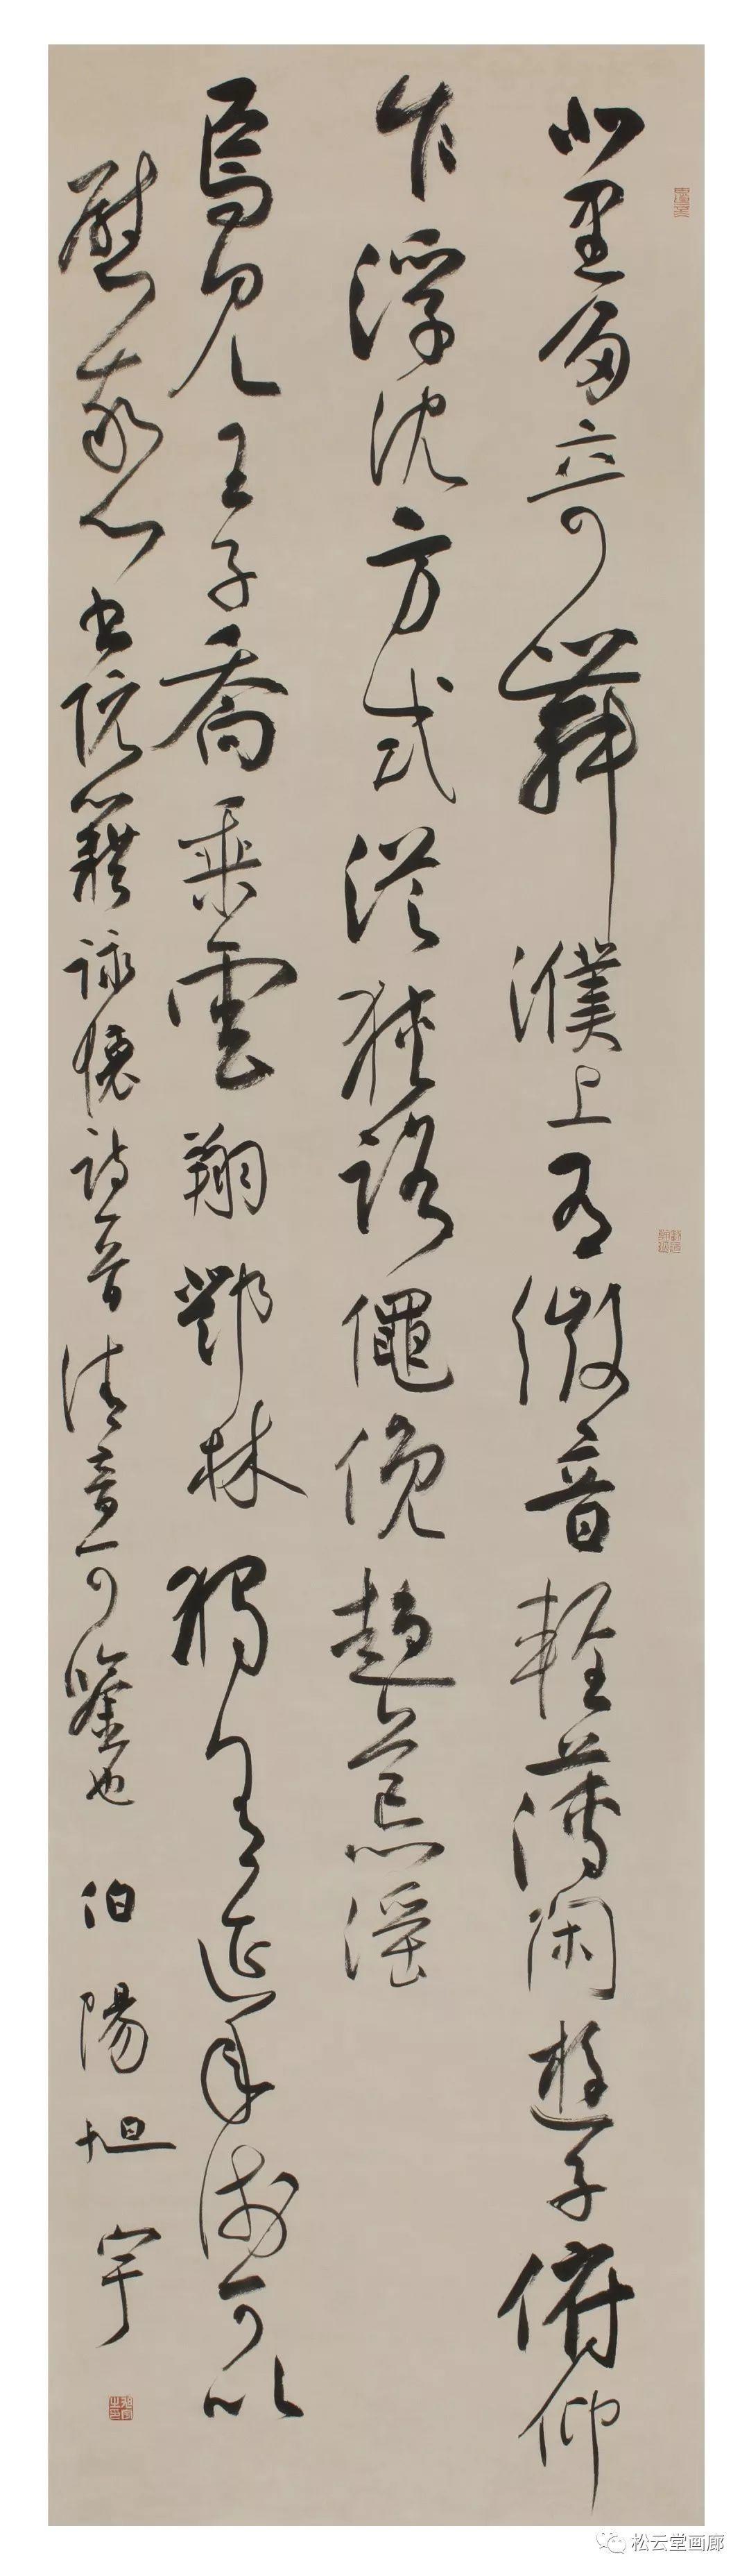 北里多奇舞濮上有微音輕薄閑遊子俯仰
乍浮沈方式從狹路僶俛趨荒淫
焉見王子喬乘雲翔鄧林獨有延年術可以
慰我心書阮籍詠懷詩一首清音可鑒也伯陽旭宇
松云堂画廊